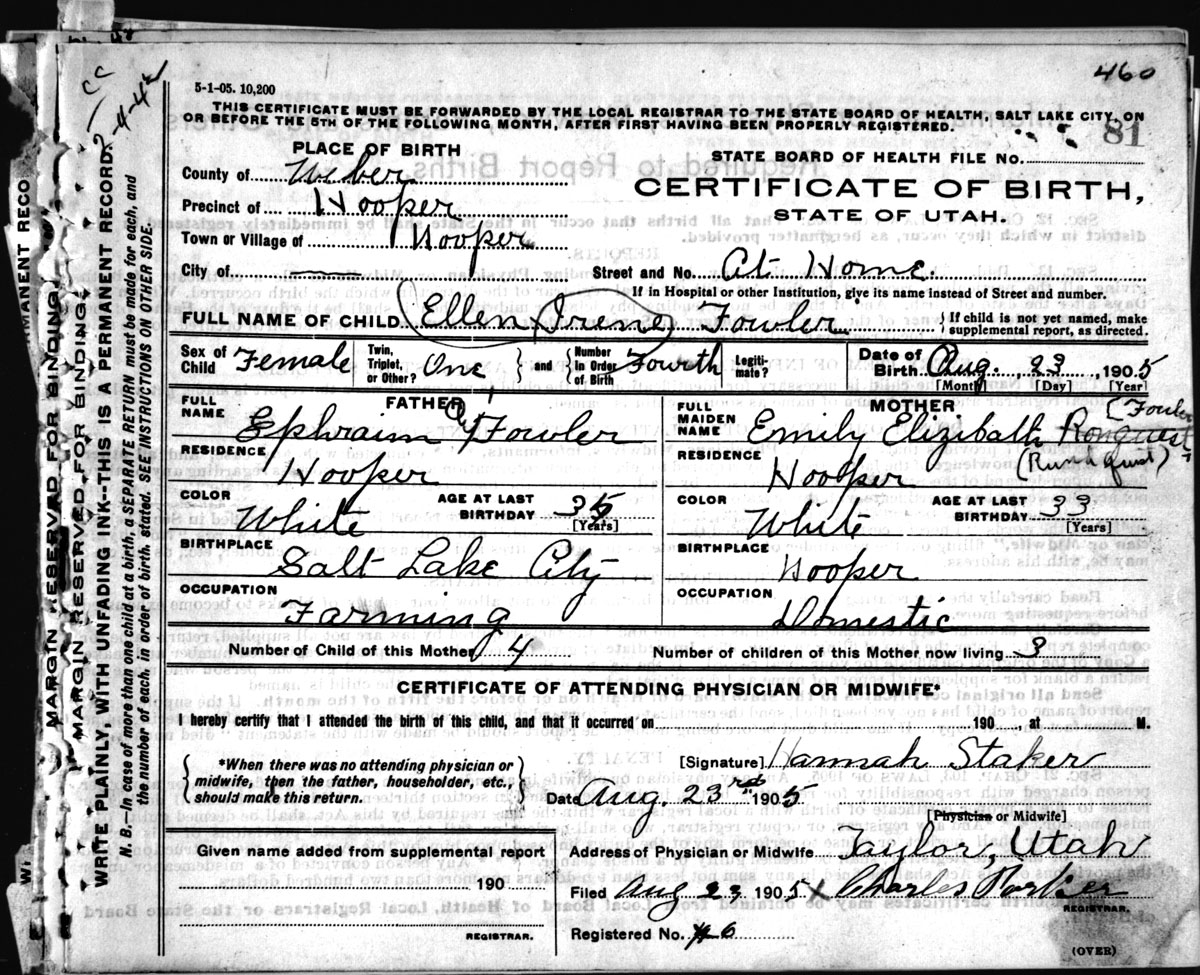 460
5-1-05. 10,200
THIS CERTIFICATE MUST BE FORWARDED BY THE LOCAL REGISTRAR TO THE STATE BOARD OF HEALTH, SALT LAKE CITY, ON
OR BEFORE THE 5TH OF THE FOLLOWING MONTH, AFTER FIRST HAVING BEEN PROPERLY REGISTERED.
81
PLACE OF BIRTH
STATE BOARD OF HEALTH FILE NO.
County of Weber
CERTIFICATE OF BIRTH,
Precinct of Hooper
STATE OF UTAH.
Town or Village of Hooper
City of — Street and No. At Home.
If in Hospital or other Institution, give its name instead of Street and number.
FULL NAME OF CHILD (Ellen (Irene) Fowler { If child is not yet named, make supplemental report, as directed.
Sex of Child Female Twin, Triplet, or Other? One } and { Number in Order of Birth Fourth Legitimate? Date of Birth Aug. 23 1905
[Month] [Day] [Year]
FATHER MOTHER
FULL NAME Ephraim Fowler FULL MAIDEN NAME Emily Elizibath Ronquest (Fowler
RESIDENCE Hooper RESIDENCE Hooper (Rundquist)
COLOR White AGE AT LAST BIRTHDAY 35 [Years] COLOR White AGE AT LAST BIRTHDAY 33 [Years]
BIRTHPLACE Salt Lake City BIRTHPLACE Hooper
OCCUPATION Farming OCCUPATION Domestic
Number of Child of this Mother 4 Number of children of this Mother now living 3
CERTIFICATE OF ATTENDING PHYSICIAN OR MIDWIFE*
I hereby certify that I attended the birth of this child, and that it occurred on 190 at M.
{ *When there was no attending physician or midwife, then the father, householder, etc., should make this return. }
[Signature] Hannah Staker
Date Aug. 23rd 1905
[Physician or Midwife]
Given name added from supplemental report
Address of Physician or Midwife Taylor, Utah
190
Filed Aug 23 1905 Charles Parker
REGISTRAR.
REGISTRAR.
Registered No. #6
(OVER)
MARGIN RESERVED FOR BINDING.
MARGIN RESERVED FOR BINDING.
WRITE PLAINLY, WITH UNFADING INK--THIS IS A PERMANENT RECORD.
N. B.—In case of more than one child at a birth, a SEPARATE RETURN must be made for each, and
the number of each, in order of birth, stated. SEE INSTRUCTIONS ON OTHER SIDE.